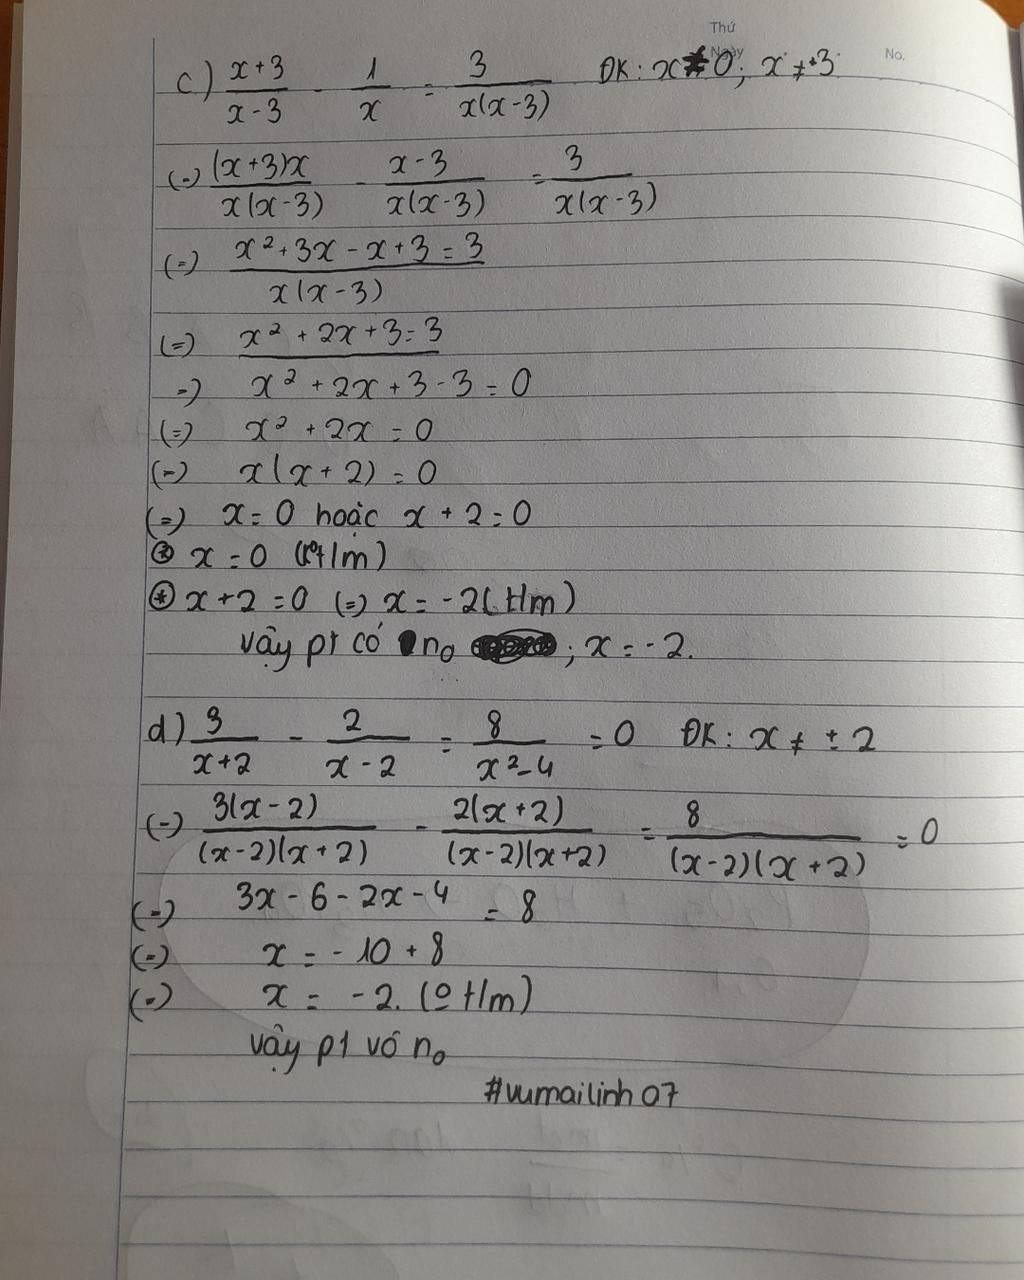 Thứ
Ngày No.
c) x+3/x-3 - 1/x = 3/x(x-3) ĐK: x ≠ 0; x ≠ +3
(=) (x+3)x/x(x-3) - x-3/x(x-3) = 3/x(x-3)
(=) x² + 3x - x + 3 = 3/x(x-3)
(=) x² + 2x + 3 = 3
=) x² + 2x + 3 - 3 = 0
(=) x² + 2x = 0
(=) x(x + 2) = 0
(=) x = 0 hoặc x + 2 = 0
⊛ x = 0 (K° t/m)
⊛ x + 2 = 0 (=) x = -2 (t/m)
vậy pt có n₀ ; x = -2.
d) 3/x+2 - 2/x-2 = 8/x²-4 = 0 ĐK: x ≠ ± 2
(=) 3(x-2)/(x-2)(x+2) - 2(x+2)/(x-2)(x+2) = 8/(x-2)(x+2) = 0
(=) 3x - 6 - 2x - 4 = 8
(=) x = -10 + 8
(=) x = -2. (o t/m)
vậy pt vô n₀
#vumailinh07